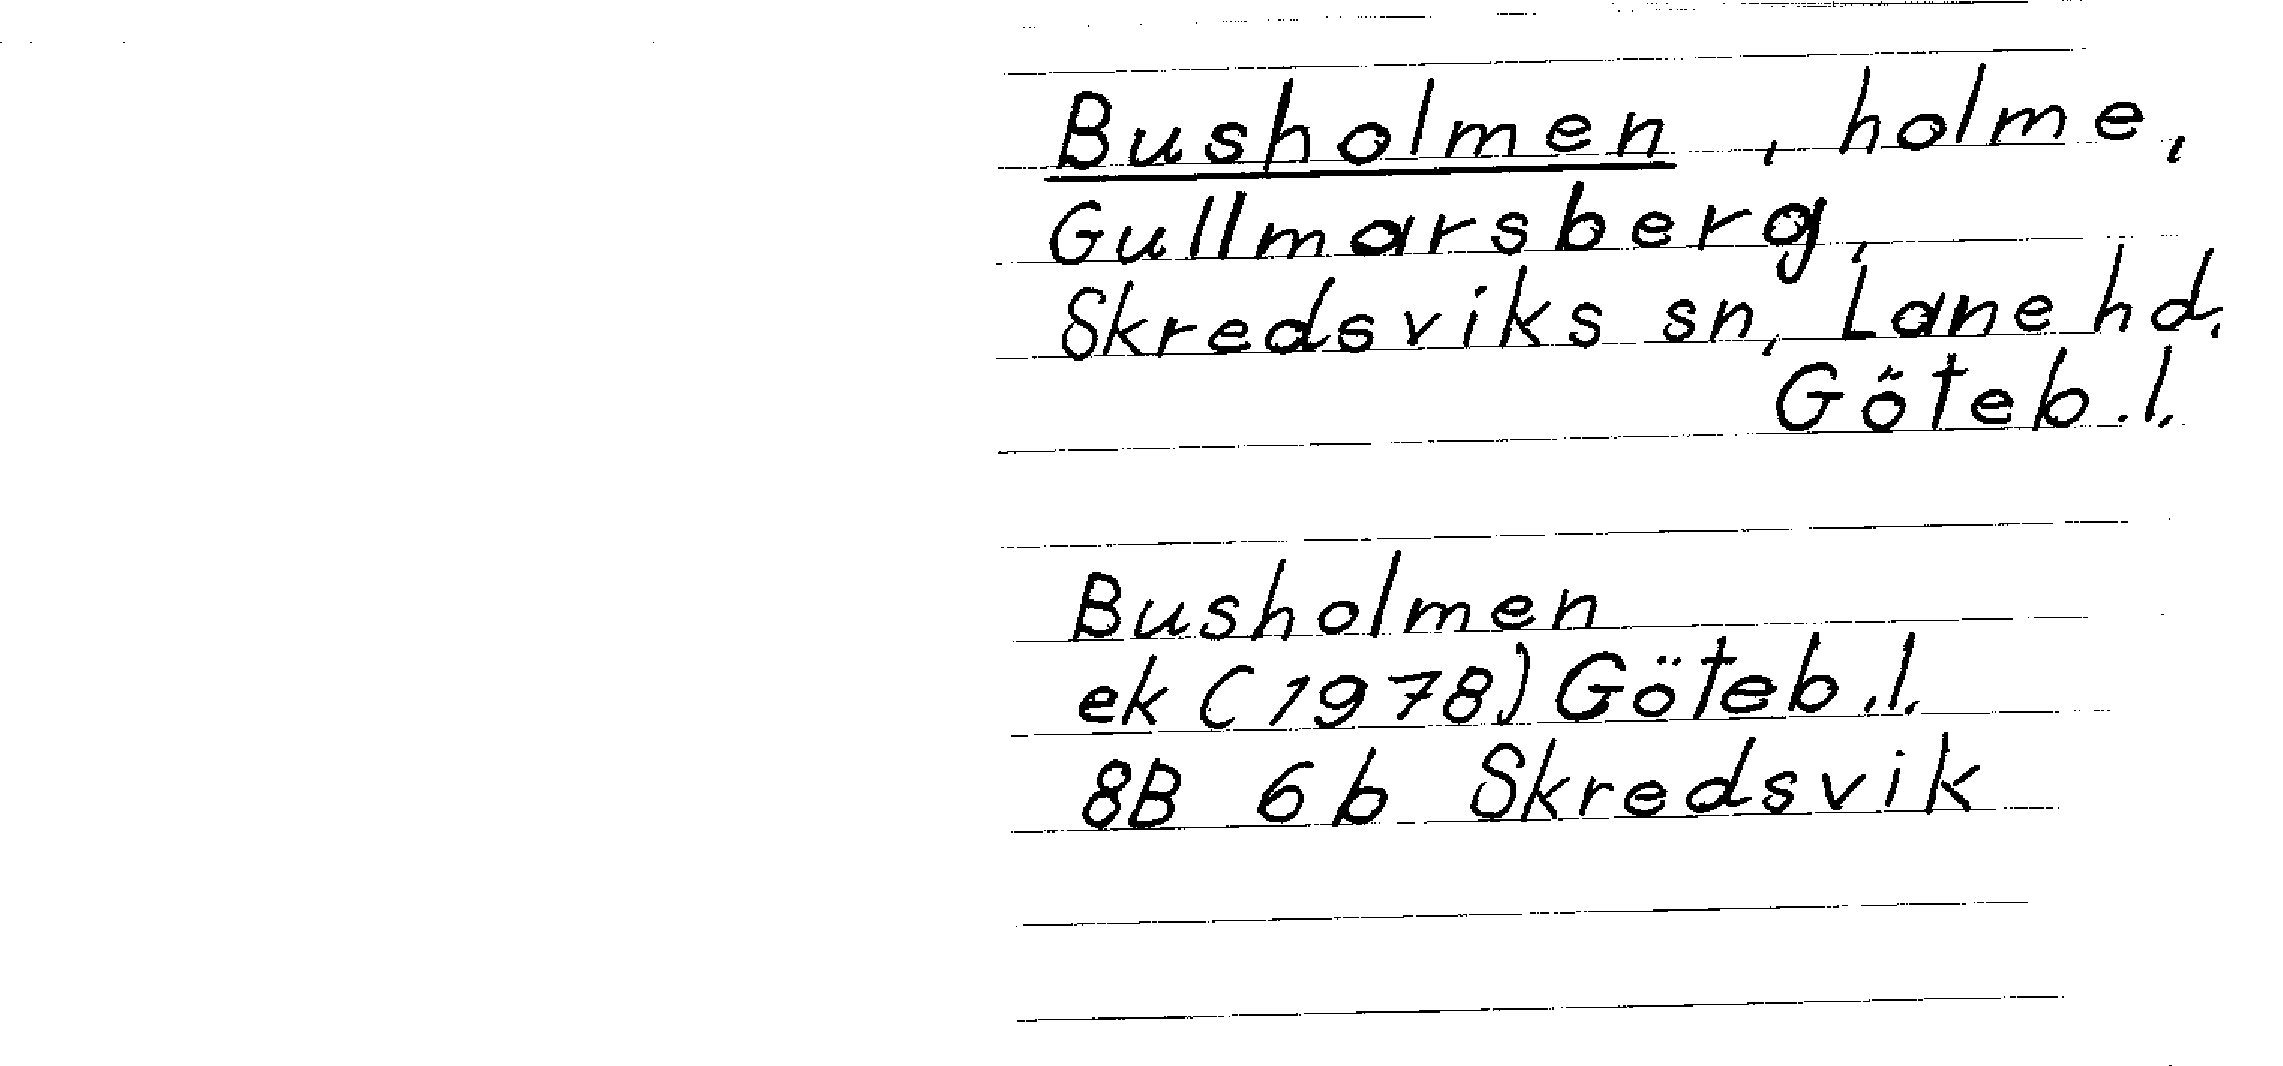 Busholmen, holme,
Gullmarsberg,
Skredsviks sn, Lane hd.
Göteb.l.
Busholmen
ek (1978) Göteb.l.
8B 6b Skredsvik